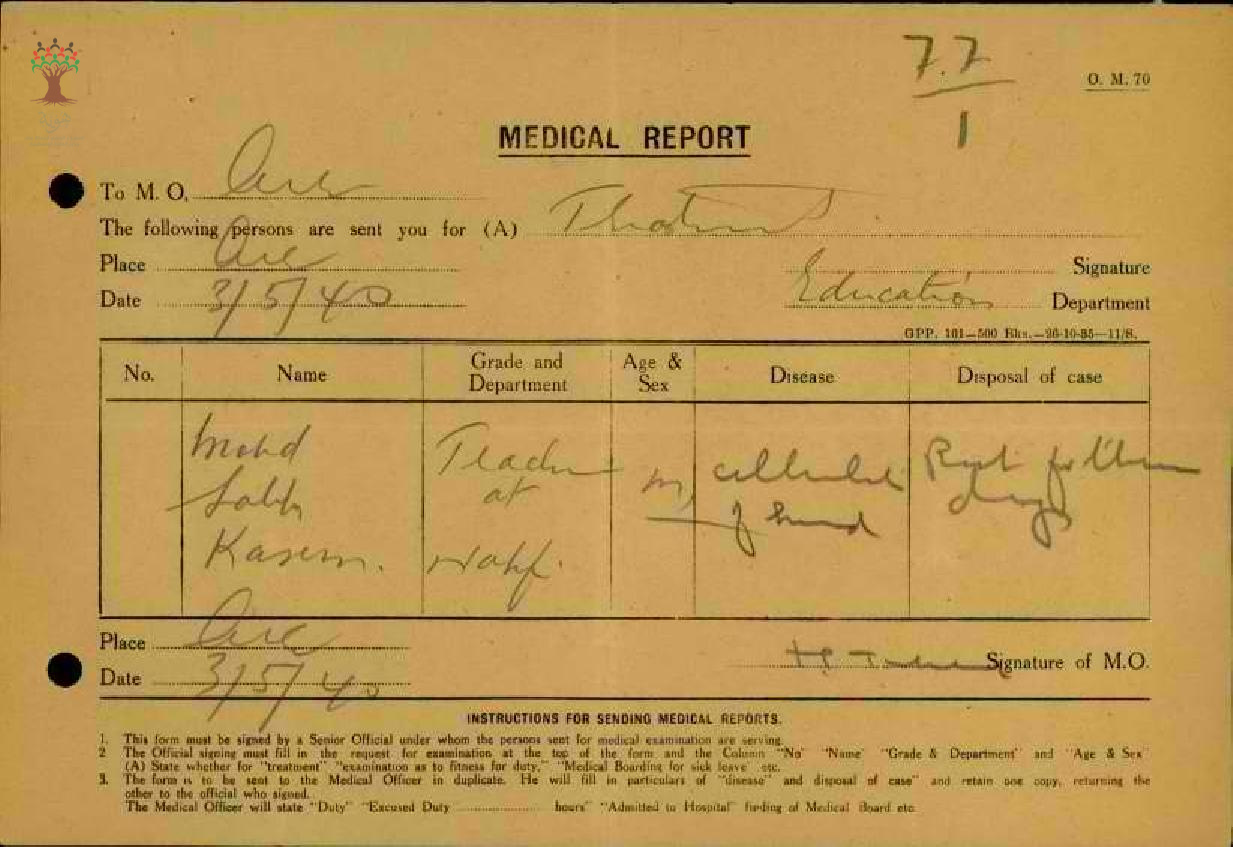 7.7
1
O. M. 70
MEDICAL REPORT
To M. O, Acre
The following persons are sent you for (A)
Place Acre
Signature
Date 3/5/40
Education Department
GPP. 101—500 Bks.—26-10-35—11/8.
No. Name Grade and Department Age & Sex Disease Disposal of case
Mohd Teacher M, of hand Rest for three
at days
Kasem.
Place Acre
Signature of M.O.
Date 3/5/40
INSTRUCTIONS FOR SENDING MEDICAL REPORTS.
1. This form must be signed by a Senior Official under whom the persons sent for medical examination are serving.
2 The Official signing must fill in the request for examination at the top of the form and the Column "No" "Name" "Grade & Department" and "Age & Sex"
(A) State whether for "treatment" "examination as to fitness for duty," "Medical Boarding for sick leave" etc.
3. The form is to be sent to the Medical Officer in duplicate. He will fill in particulars of "disease" and disposal of case" and retain one copy, returning the
other to the official who signed.
The Medical Officer will state "Duty" "Excused Duty .................... hours" "Admitted to Hospital" finding of Medical Board etc.